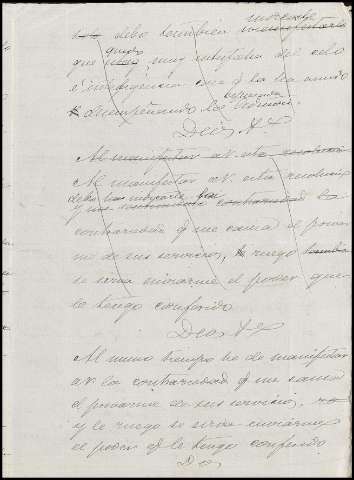 debo tambien
manifestarle
que quedo muy satisfecho del celo
é inteligencia con q. la ha venido
desempeñando
Dios &
Al manifestar
Al manifestar á V. esta
contrariedad la
contrariedad q. me causa el privar
me de sus servicios, ruego
se sirva enviarme el poder que
le tengo conferido
Dios &
Al mismo tiempo he de manifestar
á V. la contrariedad q. me causa
el privarme de sus servicios,
y le ruego se sirva enviarme
el poder q. le tengo conferido.
Dios